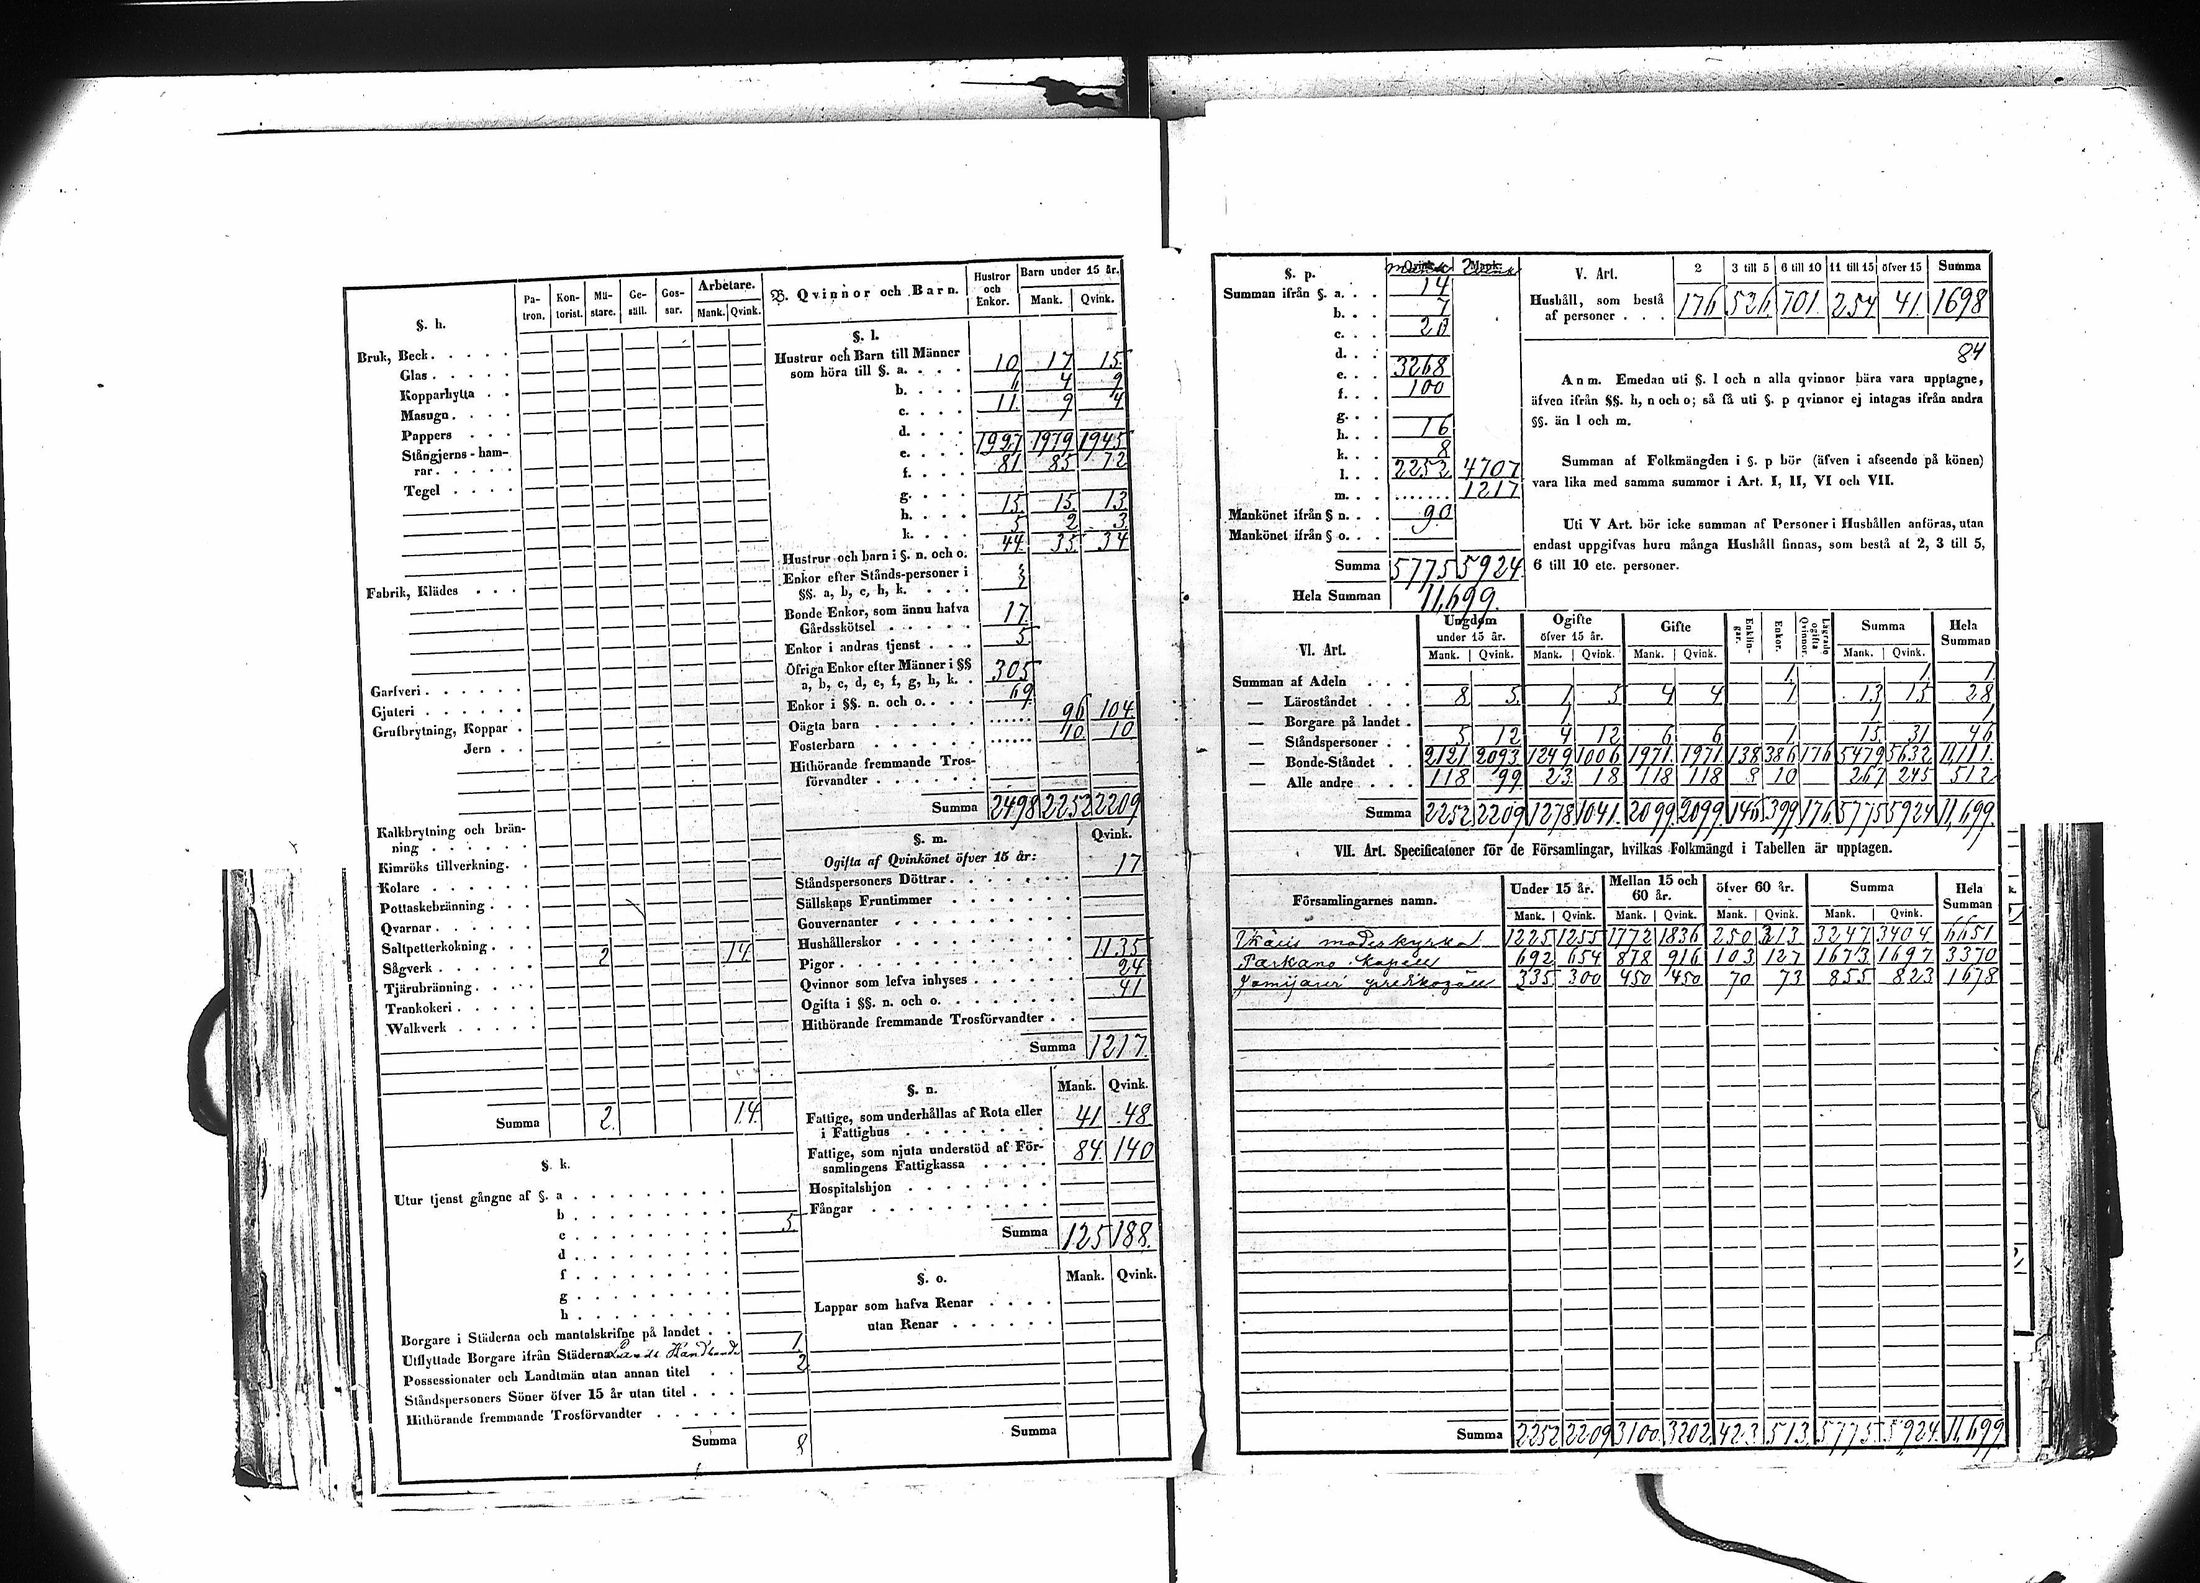 §. h.
Pa- tron.
Kon- torist.
Mä- stare.
Ge- säll.
Gos- sar.
Arbetare.
Mank. Qvink.
Bruk, Beck . . . . .
Glas . . . . .
Kopparhytta . .
Masugn . . . .
Pappers . . .
Stångjerns-ham-
rar . . . . .
Tegel . . . .
Fabrik, Klädes . . .
Garfveri . . . . . .
Gjuteri . . . . . .
Grufbrytning, Koppar .
Jern . .
Kalkbrytning och brän-
ning . . . . . .
Kimröks tillverkning. .
Kolare . . . . . .
Pottaskebränning . . .
Qvarnar . . . . . .
Saltpetterkokning . . .
Sågverk . . . . . 2 14
Tjärubränning . . . .
Trankokeri . . . . .
Walkverk . . . . .
Summa 2. 14.
§. k.
Utur tjenst gångne af §. a . . . . . . . .
b . . . . . . . .
c . . . . . . . . 5.
d . . . . . . . .
f . . . . . . . .
g . . . . . . . .
h . . . . . . . .
Borgare i Städerna och mantalskrifne på landet . . 1.
Utflyttade Borgare ifrån Städerna Lands Handlande 2
Possessionater och Landtmän utan annan titel . .
Ståndspersoners Söner öfver 15 år utan titel . . .
Hithörande fremmande Trosförvandter . . . . .
Summa 8
B. Qvinnor och Barn.
Hustror och Enkor.
Barn under 15 år.
Mank. Qvink.
§. l.
Hustrur och Barn till Männer
som höra till §. a. . . . 10 17 15.
b. . . . 4 9
c. . . . 11. 9 4
d. . . .
e. . . . 1927 1979 1945
f. . . . 81 85 72
g. . . .
h. . . . 15. 15. 13
k. . . . 5 2 3
Hustrur och barn i §. n. och o. 44 35. 34
Enkor efter Stånds-personer i
§§. a, b, c, h, k. . . .
Bonde Enkor, som ännu hafva
Gårdsskötsel . . . . . 17.
Enkor i andras tjenst . . . 5.
Öfriga Enkor efter Männer i §§
a, b, c, d, e, f, g, h, k. . 305
Enkor i §§. n. och o. . . . 69.
Oägta barn . . . . . . . 96 104.
Fosterbarn . . . . . . 10. 10
Hithörande fremmande Tros-
förvandter . . . . . .
Summa 2498 2252 2209
§. m.
Qvink.
Ogifta af Qvinkönet öfver 15 år:
Ståndspersoners Döttrar . . . . . . . 17
Sällskaps Fruntimmer . . . . . . .
Gouvernanter . . . . . . . . .
Hushållerskor . . . . . . . . .
Pigor . . . . . . . . . . . . 1135
Qvinnor som lefva inhyses . . . . . . 24
Ogifta i §§. n. och o. . . . . . . . 41
Hithörande fremmande Trosförvandter . .
Summa 1217.
§. n.
Mank. Qvink.
Fattige, som underhållas af Rota eller
i Fattighus . . . . . . . 41 48
Fattige, som njuta understöd af För-
samlingens Fattigkassa . . . . 84. 140
Hospitalshjon . . . . . . . .
Fångar . . . . . . . . . .
Summa 125 188.
§. o.
Mank. Qvink.
Lappar som hafva Renar . . . .
utan Renar . . . . . .
Summa
§. p.
Summan ifrån §. a. . . 14
b. . . 7
c. . . 20
d. . .
e. . . 3268
f. . . 100
g. . .
h. . . 16
k. . . 8
l. . . 2252 4707
m. . . ....... 1217
Mankönet ifrån § n. . . 90
Mankönet ifrån § o. . .
Summa 5775 5924
Hela Summan 11,699.
V. Art.
2
3 till 5
6 till 10
11 till 15
öfver 15
Summa
Hushåll, som bestå
af personer . . . 176 526 701. 254 41. 1698
84
Anm. Emedan uti §. l och n alla qvinnor bära vara upptagne,
äfven ifrån §§. h, n och o; så få uti §. p qvinnor ej intagas ifrån andra
§§. än l och m.
Summan af Folkmängden i §. p bör (äfven i afseende på könen)
vara lika med samma summor i Art. I, II, VI och VII.
Uti V Art. bör icke summan af Personer i Hushållen anföras, utan
endast uppgifvas huru många Hushåll finnas, som bestå af 2, 3 till 5,
6 till 10 etc. personer.
VI. Art.
Ungdom under 15 år.
Ogifte öfver 15 år.
Gifte
Enklin- gar.
Enkor.
Lägrade ogifta Qvinnor.
Summa
Hela Summan
Mank. Qvink. Mank. Qvink. Mank. Qvink. Mank. Qvink.
Summan af Adeln . . . 1. 1. 1
— Läroståndet . . . 8 5. 1 5 4 4 1 13 15 28
— Borgare på landet . 1 1 1
— Ståndspersoner . . 5. 12 4 12 6 6 1 15. 31 46
— Bonde-Ståndet . . 2121 2093 1249 1006 1971. 1971. 138 386 176 5479 5632 11,111.
— Alle andre . . . . 118 99 23 18 118 118 8 10 267 245 512
Summa 2252 2209 1278 1041. 2099 2099 146 399 176. 5775 5924 11,699.
VII. Art. Specificationer för de Församlingar, hvilkas Folkmängd i Tabellen är upptagen.
Församlingarnes namn.
Under 15 år.
Mellan 15 och 60 år.
öfver 60 år.
Summa
Hela Summan
Mank. Qvink. Mank. Qvink. Mank. Qvink. Mank. Qvink.
Ikalis moderkyrka 1225 1255 1772 1836 250 313 3247 3404 6651
Parkano kapell 692 654 878 916 103 127 1673 1697 3370
Jämijärvi 335 300 450 450 70 73 855 823 1678
Summa 2252 2209 3100 3202 423 513 5775 5924. 11,699